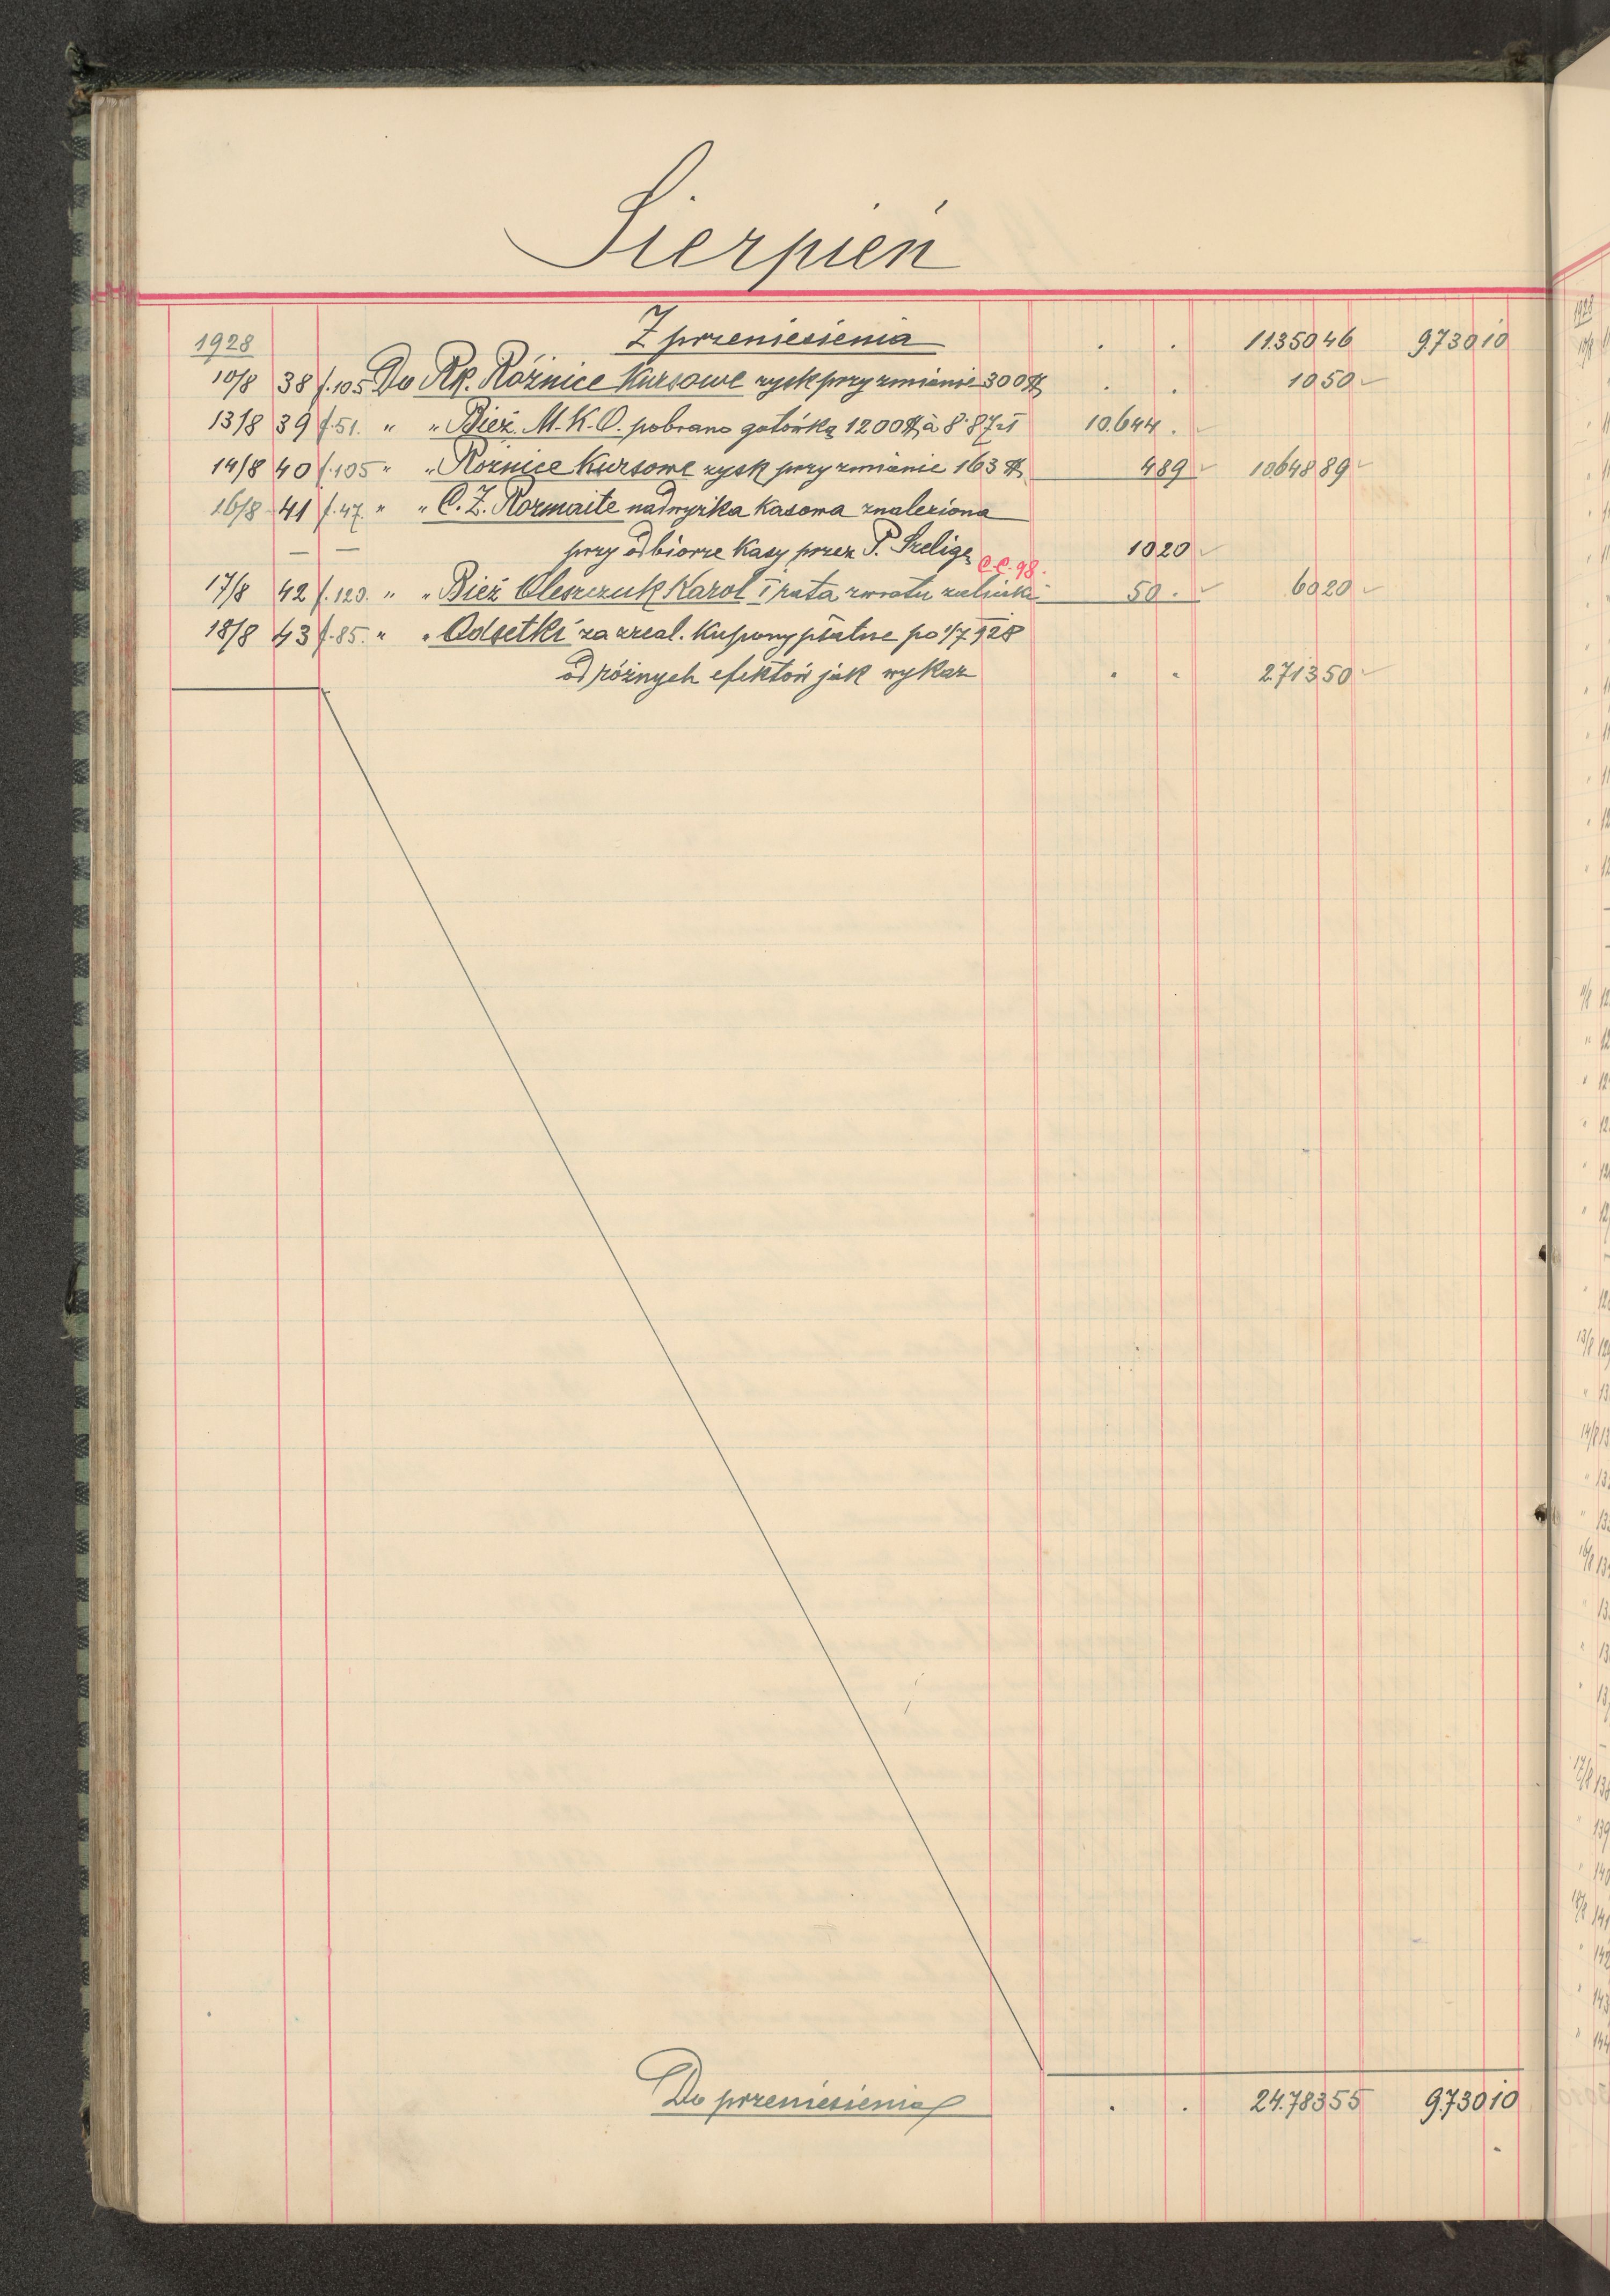 Sierpień
1928 Z przeniesienia . . 11350 46 9730 10
10/8 38 f.105 Do Rk. Różnice Kursowe zysk przy zmianie 300 $ . . 10 50
13/8 39 f.51. " " Bież. M.K.O. pobrano gotówką 1200 $ à 8·87 zł 10.644 .
14/8 40 f.105 " " Różnice Kursowe zysk przy zmianie 163 $ 4 89 10648 89
16/8 41 f.47. " " C. Ż. Rozmaite nadwyżka kasowa znaleziona
— — przy odbiorze Kasy przez P. Szeligę 10 20
C.C. 98.
17/8 42 f.123. " " Bież Oleszczuk Karol I rata zwrotu zaliczki 50 . 60 20
18/8 43 f.85. " " Odsetki za zreal. Kupony płatne po 1/7 928
od różnych efektów jak wykaz . . 2.713 50
Do przeniesienia . . 24.783 55 9.730 10